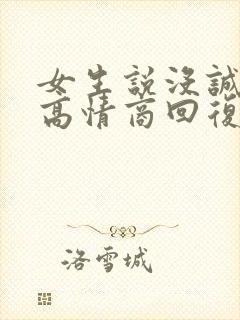 女生說沒誠
高情商回復
洛雪城